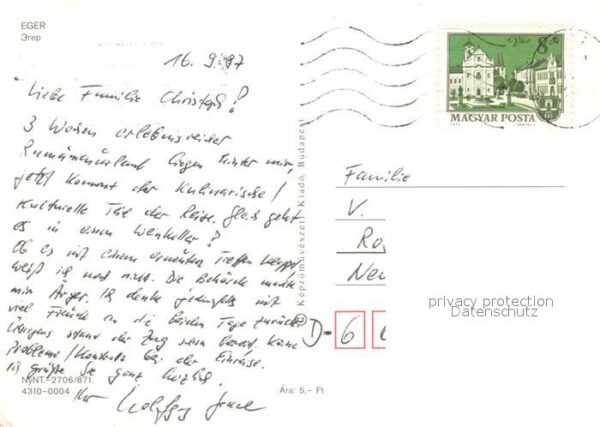 EGER
Эгер
16. 9. 87
Liebe Familie
3 Wochen erlebnisreicher
Rumänienurlaub liegen hinter mir,
jetzt kommt der kulinarische/
kulturelle Teil der Reise. Gleich geht
es in einen Weinkeller!
Ob es mit einem erneuten Treffen klappt,
weiß ich noch nicht. Die Behörde macht
mir Ärger. Ich denke jedenfalls mit
viel Freude an die beiden Tage zurück.
Übrigens stand der Zug schon bereit. Keine
Probleme/Kontrolle bei der Einreise.
Ich grüße Sie ganz herzlich
Ihr
NyNT.-2706/871.
4310-0004
Ára: 5,- Ft
Képzőművészeti Kiadó, Budapest
Vác 8 Ft
MAGYAR POSTA
Familie
V.
Ro
Ne
D-6
privacy protection
Datenschutz